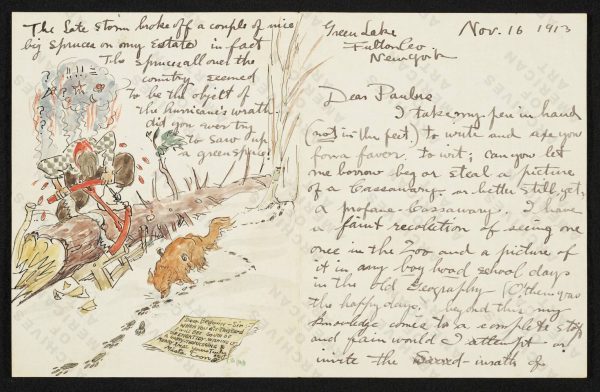 The late storm broke off a couple of nice
big spruces on my Estate in fact
The spruces all over the
country seemed
To be the object of
the hurricane's wrath
did you ever try
to saw up
a green spruce!
Dear
Green Lake
Fulton Co
New York
Nov. 16 1913
Dear
I take my pen in hand
(not in the feet) to write and ask you
for a favor. to wit; can you let
me borrow beg or steal a picture
of a Cassowary. or better still, get
a profane Cassowary. I have
a faint recolection of seeing one
once in the Zoo and a picture of
it in my boy hood school days
in the old Geography - (O them was
the happy days.) beyond this my
knowledge comes to a complete stop
and pain would I attempt or
invite the wrath of